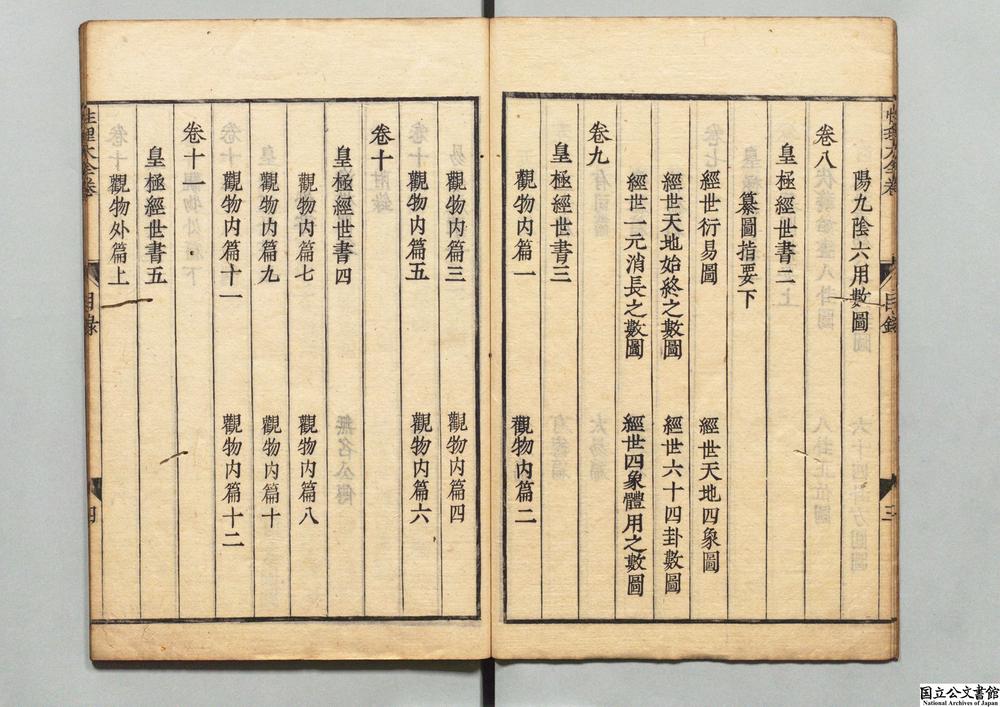 陽九陰六用數圖
卷八
皇極經世書二
纂圖指要下
經世衍易圖　經世天地四象圖
經世天地始終之數圖　經世六十四卦數圖
經世一元消長之數圖　經世四象體用之數圖
卷九
皇極經世書三
觀物内篇一　觀物内篇二
目錄
三
觀物内篇三　觀物内篇四
觀物内篇五　觀物内篇六
卷十
皇極經世書四
觀物内篇七　觀物内篇八
觀物内篇九　觀物内篇十
觀物内篇十一　觀物内篇十二
卷十一
皇極經世書五
觀物外篇上
性理大全卷
目錄
四
国立公文書館
National Archives of Japan